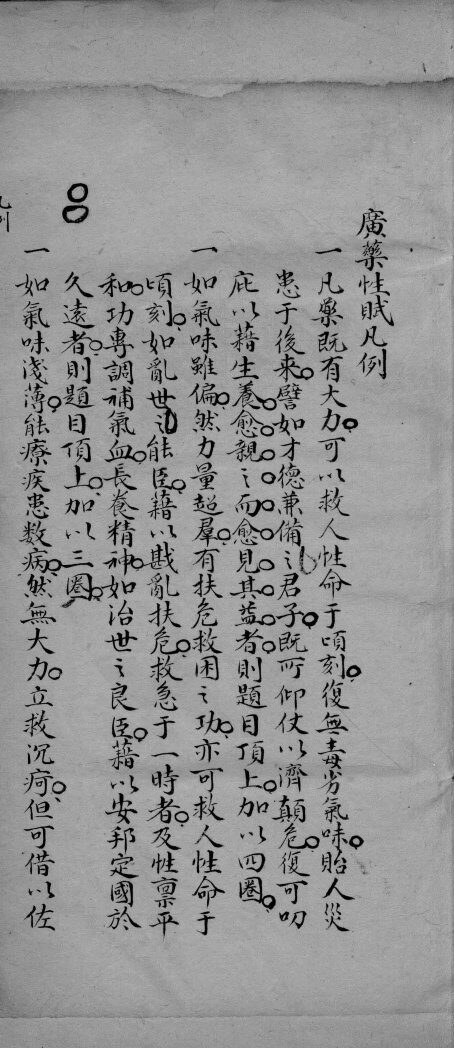 廣藥性賦凡例
一凡藥既有大力可以救人性命于頃刻復無毒劣氣味貽人災
患于後來譬如才德兼備之君子既可仰仗以濟顛危復可叨
庇以藉生養愈親之而愈見其益者則題目頂上加以四圈
一如氣味雖偏然力量超羣有扶危救困之功亦可救人性命于
頃刻如亂世之能臣藉以戡亂扶危救急于一時者及性稟平
和功專調補氣血長養精神如治世之良臣藉以安邦定國於
久遠者則題目頂上加以三圈
一如氣味淺薄能療疾患数病然無大力立救沉疴但可借以佐